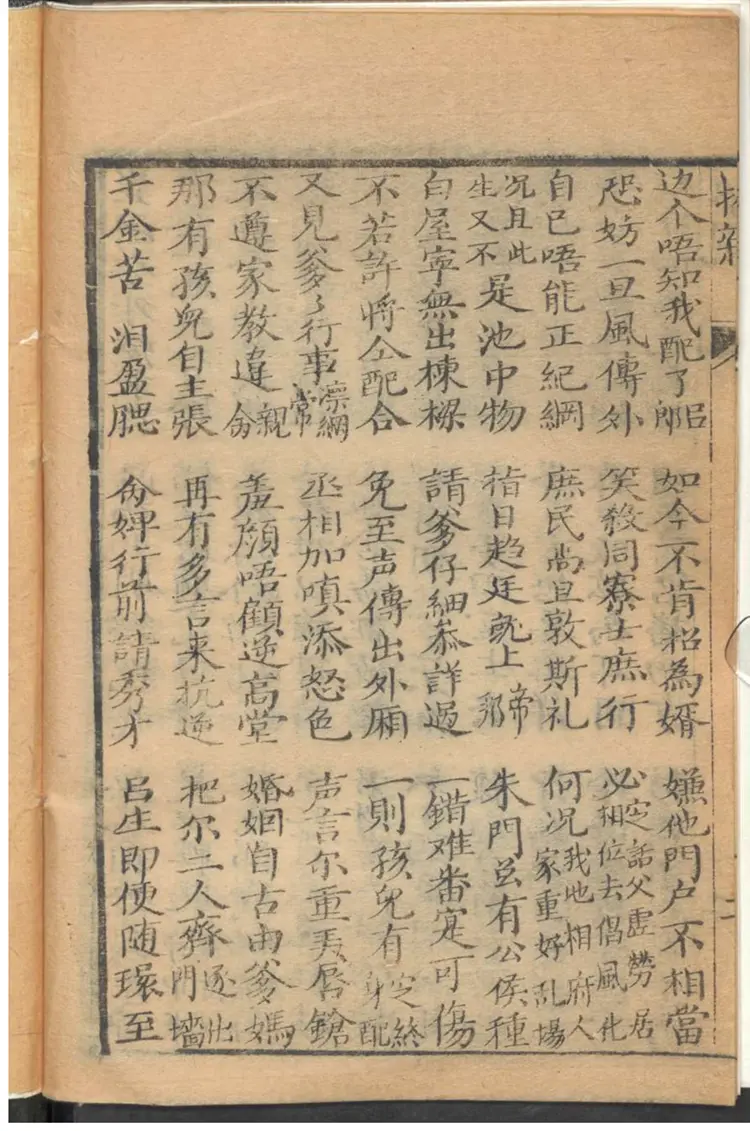 边个唔知我配了呂郎 如今不肯招為婿 嫌他門户不相當
恐妨一旦風傳外 笑殺同寮士庶行 必定話父虚勞居相位去倡風化
自已唔能正紀綱 庶民尚且敦斯礼 何况我地相府人家重好乱場
况且此生又不是池中物 指日趋廷就上帝邦 朱門豈有公侯種
白屋寧無出棟樑 請爹仔細恭詳過 一錯难番寔可傷
不若許將仝配合 免至声傳出外厢 一則孩兒有定終身配
又見爹〃行事禀綱常 丞相加嗔添怒色 声言尔重弄唇鎗
不遵家教違親命 羞顔唔顧逆高堂 婚姻自古由爹媽
那有孩兒自主張 再有多言来抗逆 把尔二人齊逐出門墻
千金苦 泪盈腮 命婢行前請秀才 吕生即便随環至